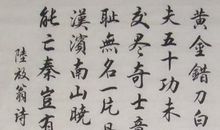 黃金錯刀白
夫五十功未
交尽奇士意
耻無名一片丹
漢濱南山曉
能亡秦豈有
陸放翁詩